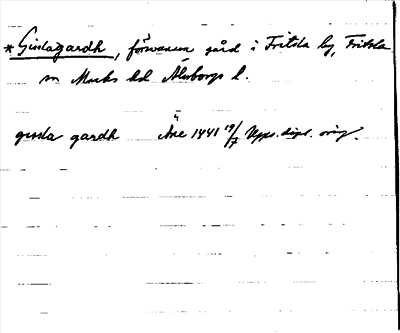 * Gislagardh, försvunnen gård i Fritsla by, Fritsla
sn Marks hd Älvsborgs l.
gisla gardh Äne 1441 19/7 Upps. dipl. orig.